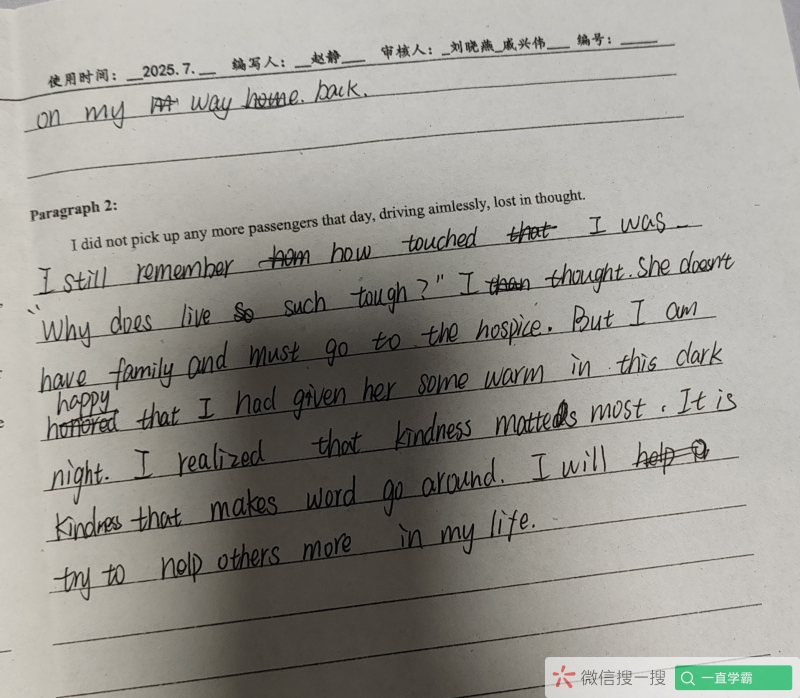 使用时间：__2025.7.__ 编写人：__赵静___ 审核人：_刘晓燕_戚兴伟___ 编号：_____
on my way back.
Paragraph 2:
I did not pick up any more passengers that day, driving aimlessly, lost in thought.
I still remember how touched I was.
"Why does live such tough?" I thought. She doesn't
have family and must go to the hospice. But I am
happy
that I had given her some warm in this dark
night. I realized that kindness matters most. It is
kindness that makes word go around. I will
try to help others more in my life.
微信搜一搜
一直学霸